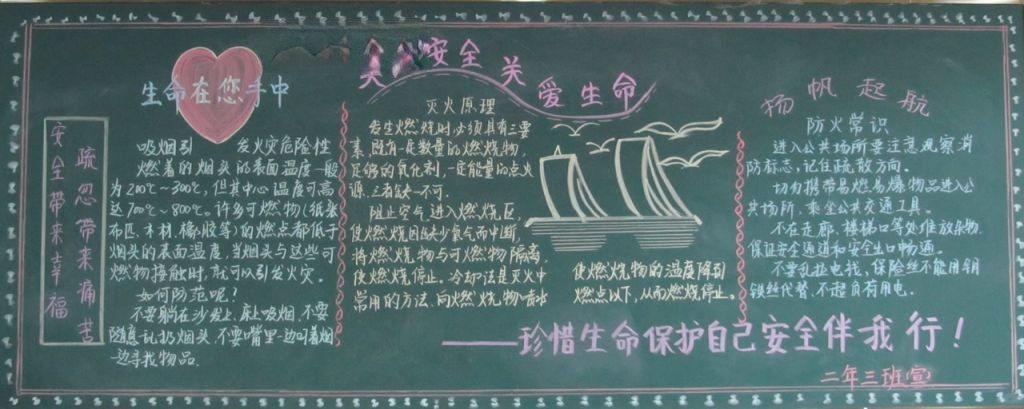 安全关爱生命
生命在您手中
安全带来幸福
疏忽带来痛苦
吸烟引 发火灾危险性
燃着的烟头的表面温度一般
为200℃~300℃,但其中心温度可高
达700℃~800℃。许多可燃物(纸张
布匹、木材、橡胶等)的燃点都低于
烟头的表面温度,当烟头与这些可
燃物接触时,就可以引发火灾。
如何防范呢?
不要躺在沙发上、床上吸烟,不要
随意乱扔烟头,不要嘴里一边叼着烟
一边寻找物品.
灭火原理
发生燃烧时必须具有三要
素,既有一定数量的燃烧物,
足够的氧化剂,一定能量的点火
源,三者缺一不可.
阻止空气进入燃烧区,
使燃烧因缺少氧气而中断,
将燃烧物与可燃物隔离,
使燃烧停止。冷却法是灭火中
常用的方法,向燃烧物
使燃烧物的温度降到
燃点以下,从而燃烧停止。
扬帆起航
防火常识
进入公共场所要注意观察消
防标志,记住疏散方向。
切勿携带易燃易爆物品进入公
共场所、乘坐公共交通工具。
不在走廊、楼梯口等处堆放杂物,
保证安全通道和安全出口畅通。
不要乱拉电线,保险丝不能用铜
铁丝代替,不超负荷用电.
——珍惜生命保护自己安全伴我行!
二年三班宣